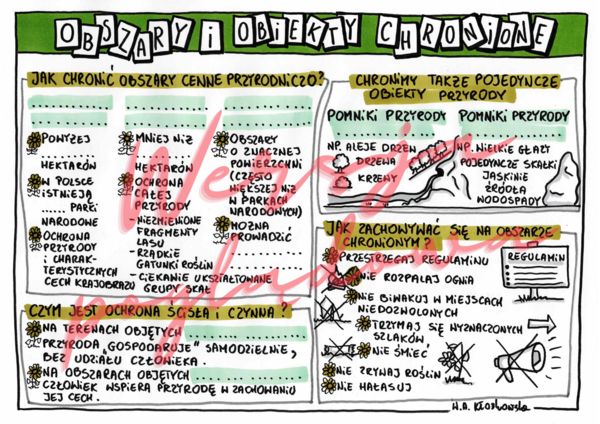 OBSZARY I OBIEKTY CHRONIONE
JAK CHRONIĆ OBSZARY CENNE PRZYRODNICZO?
POWYŻEJ
............
HEKTARÓW
W POLSCE
ISTNIEJĄ
...... PARKI
NARODOWE
OCHRONA
PRZYRODY
I CHARAK-
TERYSTYCZNYCH
CECH KRAJOBRAZU
MNIEJ NIŻ
............
HEKTARÓW
OCHRONA
CAŁEJ
PRZYRODY
- NIEZMIENIONE
FRAGMENTY
LASU
- RZADKIE
GATUNKI ROŚLIN
- CIEKAWIE UKSZTAŁTOWANE
GRUPY SKAŁ
OBSZARY
O ZNACZNEJ
POWIERZCHNI
(CZĘSTO
WIĘKSZEJ NIŻ
W PARKACH
NARODOWYCH)
MOŻNA
PROWADZIĆ
............
............
CZYM JEST OCHRONA ŚCISŁA I CZYNNA?
NA TERENACH OBJĘTYCH ............
PRZYRODA „GOSPODARUJE" SAMODZIELNIE,
BEZ UDZIAŁU CZŁOWIEKA.
NA OBSZARACH OBJĘTYCH ............
CZŁOWIEK WSPIERA PRZYRODĘ W ZACHOWANIU
JEJ CECH.
CHRONIMY TAKŻE POJEDYNCZE
OBIEKTY PRZYRODY
POMNIKI PRZYRODY
............
NP. ALEJE DRZEW
DRZEWA
KRZEWY
POMNIKI PRZYRODY
............
NP. WIELKIE GŁAZY
POJEDYNCZE SKAŁKI
JASKINIE
ŹRÓDŁA
WODOSPADY
JAK ZACHOWYWAĆ SIĘ NA OBSZARZE
CHRONIONYM?
PRZESTRZEGAJ REGULAMINU
REGULAMIN
NIE ROZPALAJ OGNIA
NIE BIWAKUJ W MIEJSCACH
NIEDOZWOLONYCH
TRZYMAJ SIĘ WYZNACZONYCH
SZLAKÓW
NIE ŚMIEĆ
NIE ZRYWAJ ROŚLIN
NIE HAŁASUJ
Wersja
poglądowa